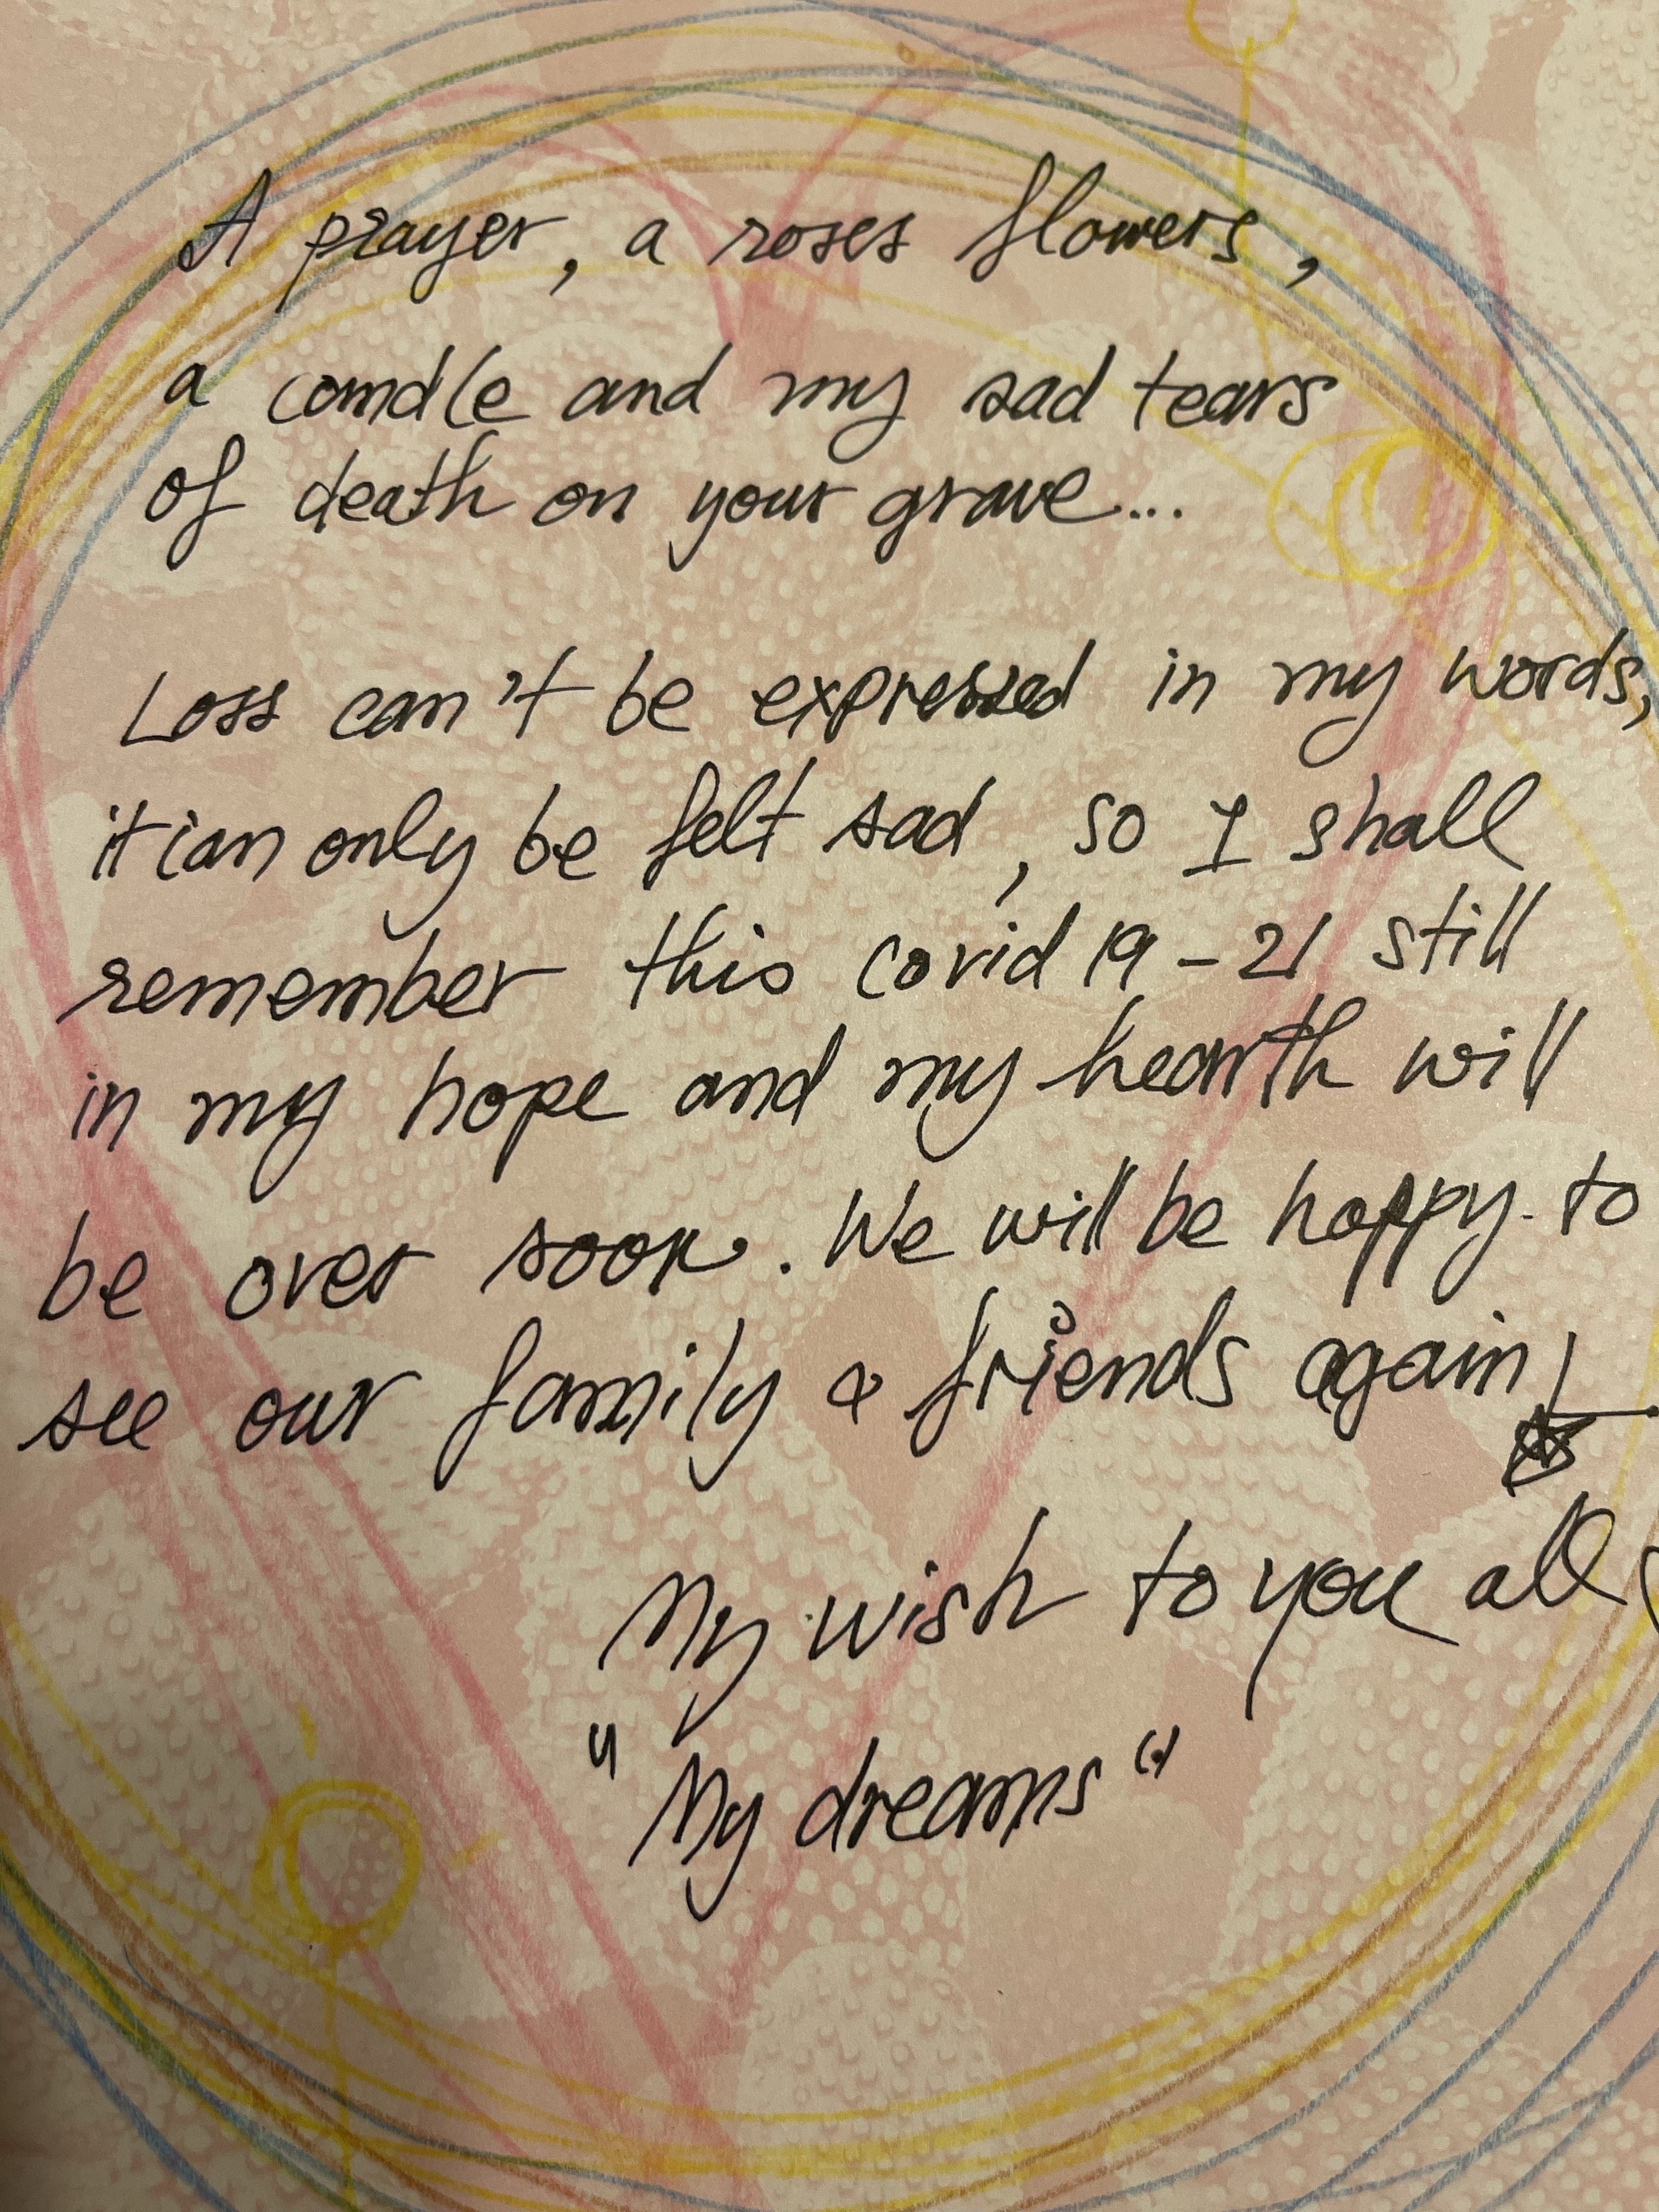 A prayer, a roses flowers,
a comdle and my sad tears
of death on your grave...
Loss can't be expressed in my words,
it can only be felt sad, so I shall
remember this covid 19 - 21 still
in my hope and my hearth will
be over soon. We will be happy to
see our family & friends again!
My wish to you all
"My dreams"